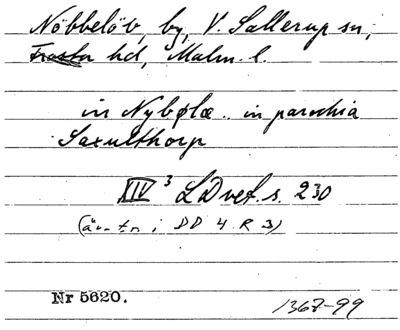 Nöbbelöv, by, V. Sallerup sn,
Frosta hd, Malm. l.
in Nybøle .. in parochia
Saxulthorp
XIV 3 LDvet. s. 230
(äv. tr. i DD 4 R 3)
Nr 5620.
1367-99